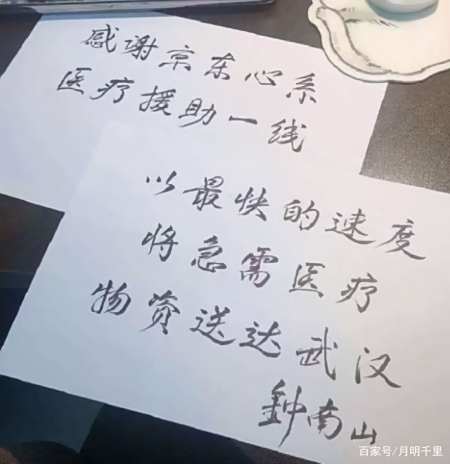 感谢京东心系
医疗援助一线
以最快的速度
将急需医疗
物资送达武汉
鈡南山
百家号/月明千里